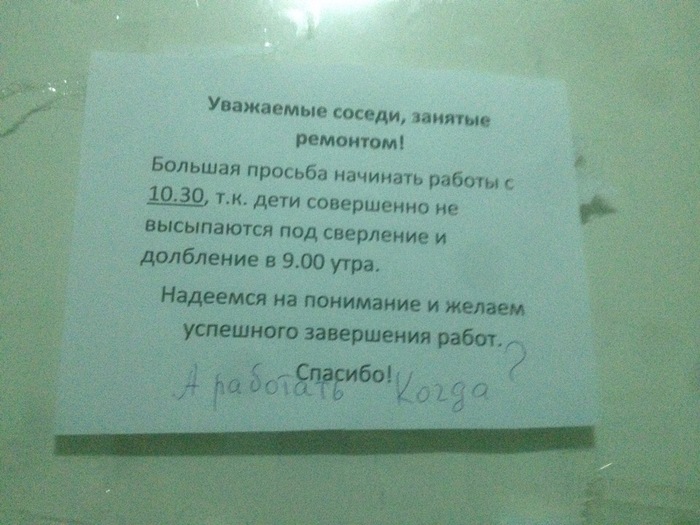 Уважаемые соседи, занятые
ремонтом!
Большая просьба начинать работы с
10.30, т.к. дети совершенно не
высыпаются под сверление и
долбление в 9.00 утра.
Надеемся на понимание и желаем
успешного завершения работ.
Спасибо!
А работать Когда?